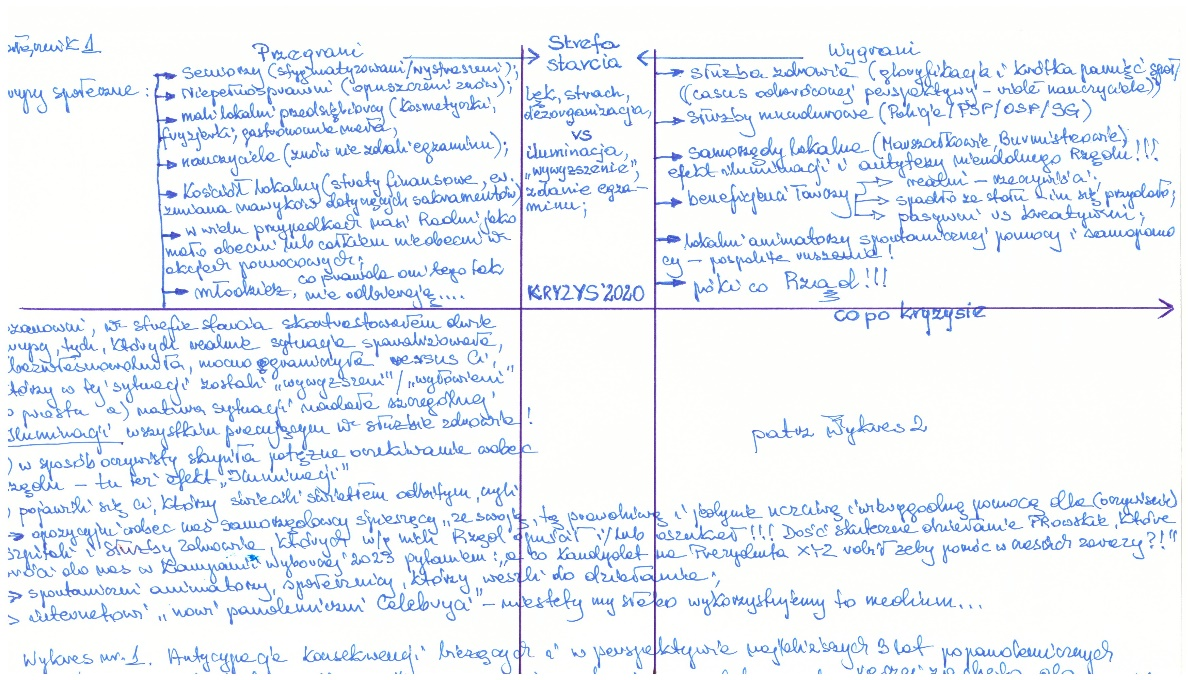 Przegrani
Seniorzy (stygmatyzowani/wystraszeni);
Niepełnosprawni (opuszczeni znów);
mali lokalni przedsiębiorcy (kosmetyczki,
fryzjerki, gastronomie
nauczyciele (znów nie zdali egzaminu);
Kościół lokalny (straty finansowe, ew.
zmiana nawyków dotyczących sakramentów)
w wielu przypadkach nasi Radni jako
mało obecni lub całkiem nieobecni w
akcjach pomocowych;
młodzież, co prawda oni tego tak
nie odbierają....
Strefa
starcia
Lęk, strach,
dezorganizacja,
vs
iluminacja,
„wywyższenie",
zdanie egza-
minu;
KRYZYS'2020
Wygrani
służba zdrowia (gloryfikacja i krótka pamięć
(casus odwróconej perspektywy - vide nauczyciele)
Służby mundurowe (Policja/PSP/OSP/SG)
samorządy lokalne (Marszałkowie, Burmistrzowie)
efekt iluminacji i antytezy nieudolnego Rządu!!!
beneficjenci Tarczy realni - rzeczywiści,
pasywni vs kreatywni;
lokalni animatorzy spontanicznej pomocy i samopomo
cy - pospolite ruszenie!
póki co Rząd!!!
co po kryzysie
patrz Wykres 2
w strefie starcia skontrastowałem dwie
tych, których realnie sytuacja sparaliżowała,
ubezwłasnowolniła, mocno ograniczyła versus Ci,
którzy w tej sytuacji zostali „wywyższeni"/„wyłowieni"
prosta a) natura sytuacji nadała szczególnej
iluminacji wszystkim pracującym w służbie zdrowia!
) w sposób oczywisty skupiła potężne oczekiwanie wobec
- tu też efekt „Iluminacji"
) pojawili się Ci, którzy świecili światłem odbitym, czyli
> opozycyjni wobec nas samorządowcy śpieszący „ze swoją, tą prawdziwą i jedynie uczciwą i wiarygodną pomocą dla (oczywiście)
szpitali i Służby Zdrowia, których w/g nich Rząd opuścił i/lub oszukał!!! Dość skuteczne działanie PRowskie, które
do nas w Kampanii Wyborczej 2023 pytaniem: „a co Kandydat na Prezydenta XYZ robił żeby pomóc w czasach zarazy?!"
> spontaniczni animatorzy, społecznicy, którzy weszli do działania;
> internetowi „nowi pandemiczni Celebryci" - niestety my słabo wykorzystujemy to medium...
Wykres nr. 1. Antycypacja konsekwencji bieżących i w perspektywie najbliższych 3 lat popandemicznych